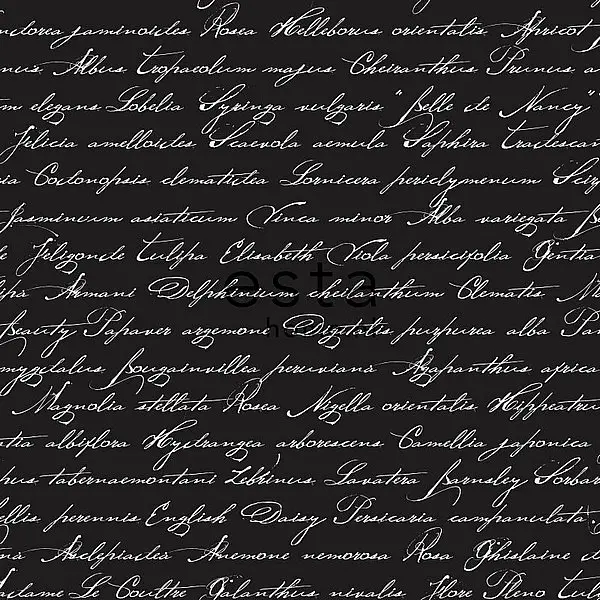 ndorea jasminoides Rosea Helleborus orientalis Apricot
nus Albus Tropaeolum majus Cheiranthus Prunus a
m elegans Lobelia Syringa vulgaris "Belle de Nancy"
Felicia amelloides Scaevola aemula Saphira tradescan
ia Codonopsis clematidea Lornicera periclymenum Scir
Jasmineum asiaticum Vinca minor Alba variegata B
e Feligonde tulipa Elisabeth Viola persicifolia Gentia
lipa Armani Delphinium cheilanthum Clematis
esta
Beauty Papaver argemone Digitalis purpurea alba Pa
home
mygdalus Bougainvillea peruviana Agapanthus africa
Magnolia stellata Rosea Nigella orientalis Hippeatru
ntia albiflora Hydrangea arborescens Camellia japonica
pus tabernaemontani Zebrinus Lavatera Barnsley Sorbar
ellis perennis English Daisy Persicaria campanulata
na Asclepiadea Anemone nemorosa Rosa Ghislaine d
adame Le Coultre Galanthus nivalis Flore Pleno tul